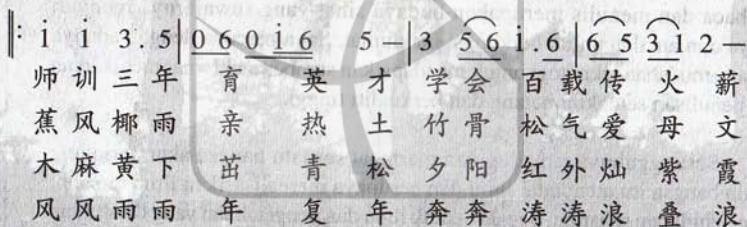 ‖: i i 3. 5 | 0 6 0 i 6 5 – | 3 5 6 i 6 | 6 5 3 1 2
师训三年 育 英 才 学会 百载传 火 薪
蕉风椰雨 亲 热 土 竹骨 松气爱 母 文
木麻黄下 茁 青 松 夕阳 红外灿 紫 霞
风风雨雨 年 复 年 奔奔 涛涛浪 叠 浪